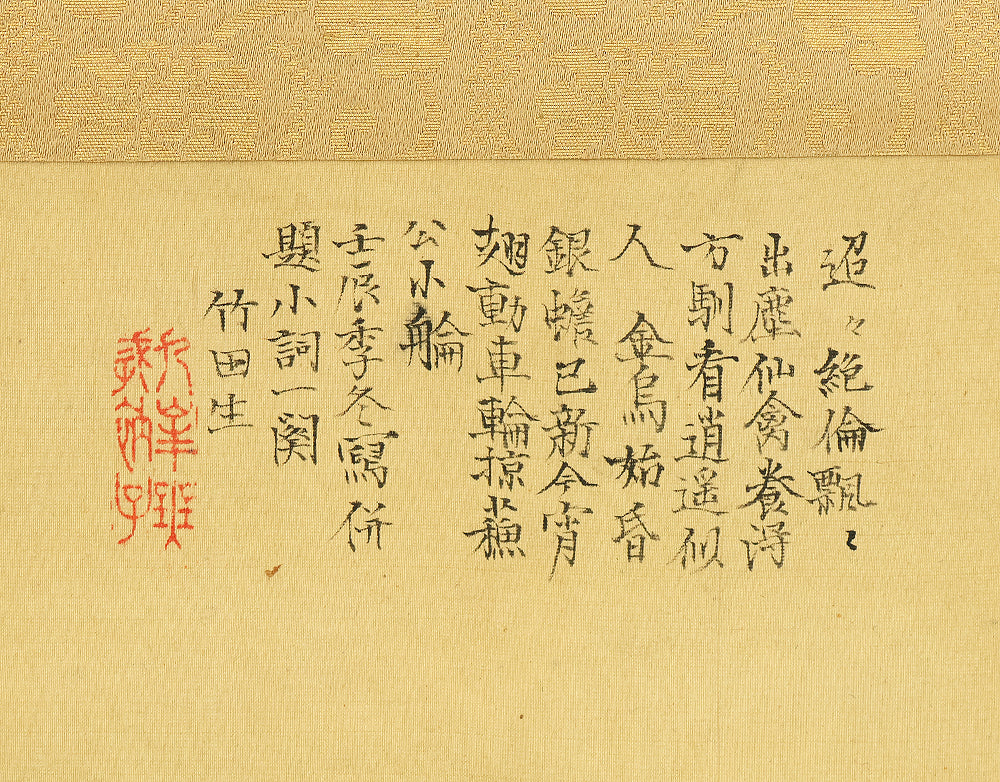 迢々絶倫飄〻
出塵仙禽養得
方馴看逍遥似
人 金烏始昏
銀蟾已新今宵
翅動車輪掠蘓
公小艙
壬辰季冬寫併
題小詞一闋
竹田生